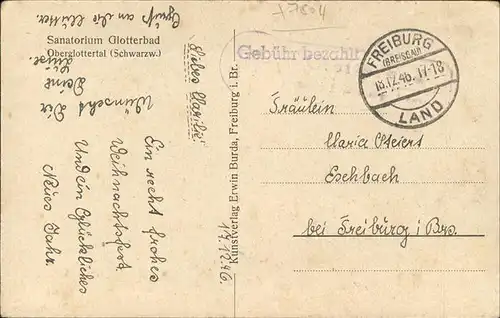 Sanatorium Glotterbad
Oberglottertal (Schwarzw.)
Gruß an die Mutter.
Liebes Mariele!
Ein recht frohes
Weihnachtsfest
Und ein Glückliches
Neues Jahr
Wünscht Dir
Deine
17.12.46
Kunstverlag Erwin Burda, Freiburg i. Br.
Gebühr bezahlt
FREIBURG
(BREISGAU)
18.12.46. 17-18
LAND
Fräulein
Maria
Eschbach
bei Freiburg i Brs.